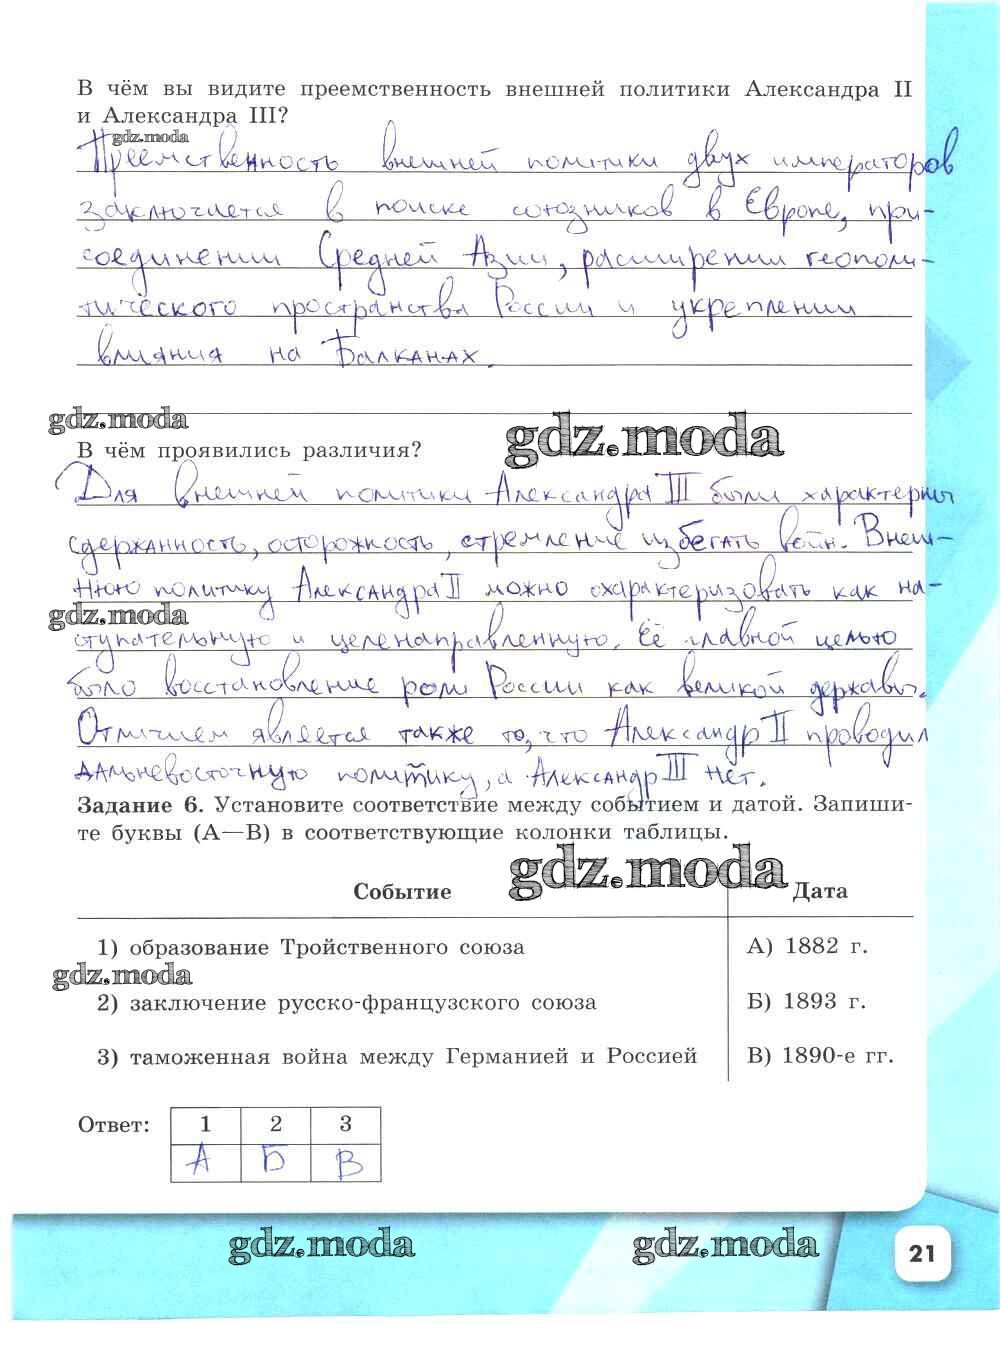 В чём вы видите преемственность внешней политики Александра II
и Александра III?
gdz.moda
Преемственность внешней политики двух императоров
заключается в поиске союзников в Европе, при-
соединении Средней Азии, расширении геополи-
тического пространства России и укреплении
влияния на Балканах.
gdz.moda
gdz.moda
В чём проявились различия?
Для внешней политики Александра III были характерны
сдержанность, осторожность, стремление избегать войн. Внеш-
нюю политику Александра II можно охарактеризовать как на-
gdz.moda
ступательную и целенаправленную. Её главной целью
было восстановление роли России как великой державы.
Отличием является также то, что Александр II проводил
дальневосточную политику, а Александр III нет.
Задание 6. Установите соответствие между событием и датой. Запиши-
те буквы (А—В) в соответствующие колонки таблицы.
gdz.moda
Событие Дата
1) образование Тройственного союза А) 1882 г.
gdz.moda
2) заключение русско-французского союза Б) 1893 г.
3) таможенная война между Германией и Россией В) 1890-е гг.
Ответ: 1 2 3
А Б В
gdz.moda gdz.moda
21